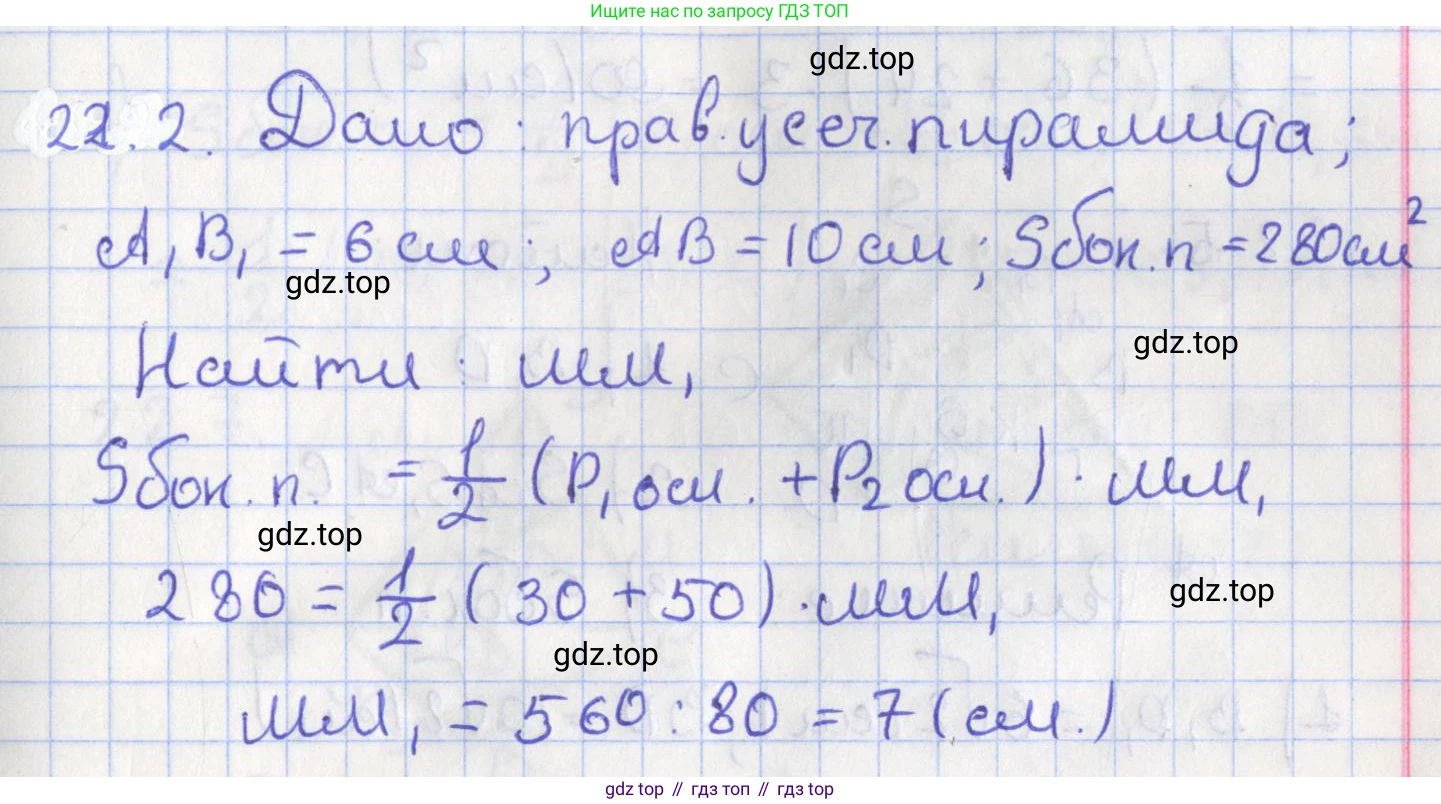 Ищите нас по запросу ГДЗ ТОП
gdz.top
22.2. Дано: прав. усеч. пирамида;
A₁B₁ = 6 см; AB = 10 см; Sбок.п = 280см²
gdz.top
gdz.top
Найти: MM₁
Sбок.п. = 1/2 (P₁осн. + P₂осн.) · MM₁
gdz.top
280 = 1/2 (30 + 50) · MM₁
gdz.top
gdz.top
MM₁ = 560 : 80 = 7 (см.)
gdz top // гдз топ // гдз top